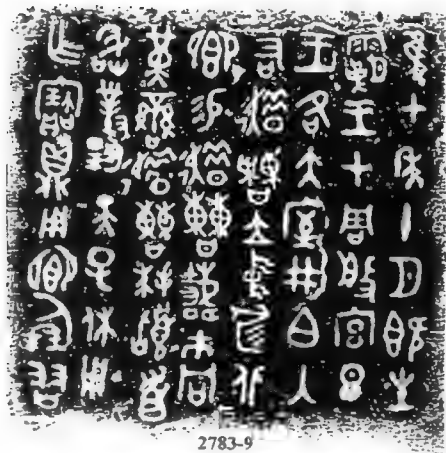 隹七年十月既生
霸王才周般宮旦
王各大室井白入
右趞曹立中廷北
鄉易趞曹𩎟巿冋
黃䜌趞曹拜𩒨首
敢對揚天子休用
乍寶鼎用鄉倗友
2783-9